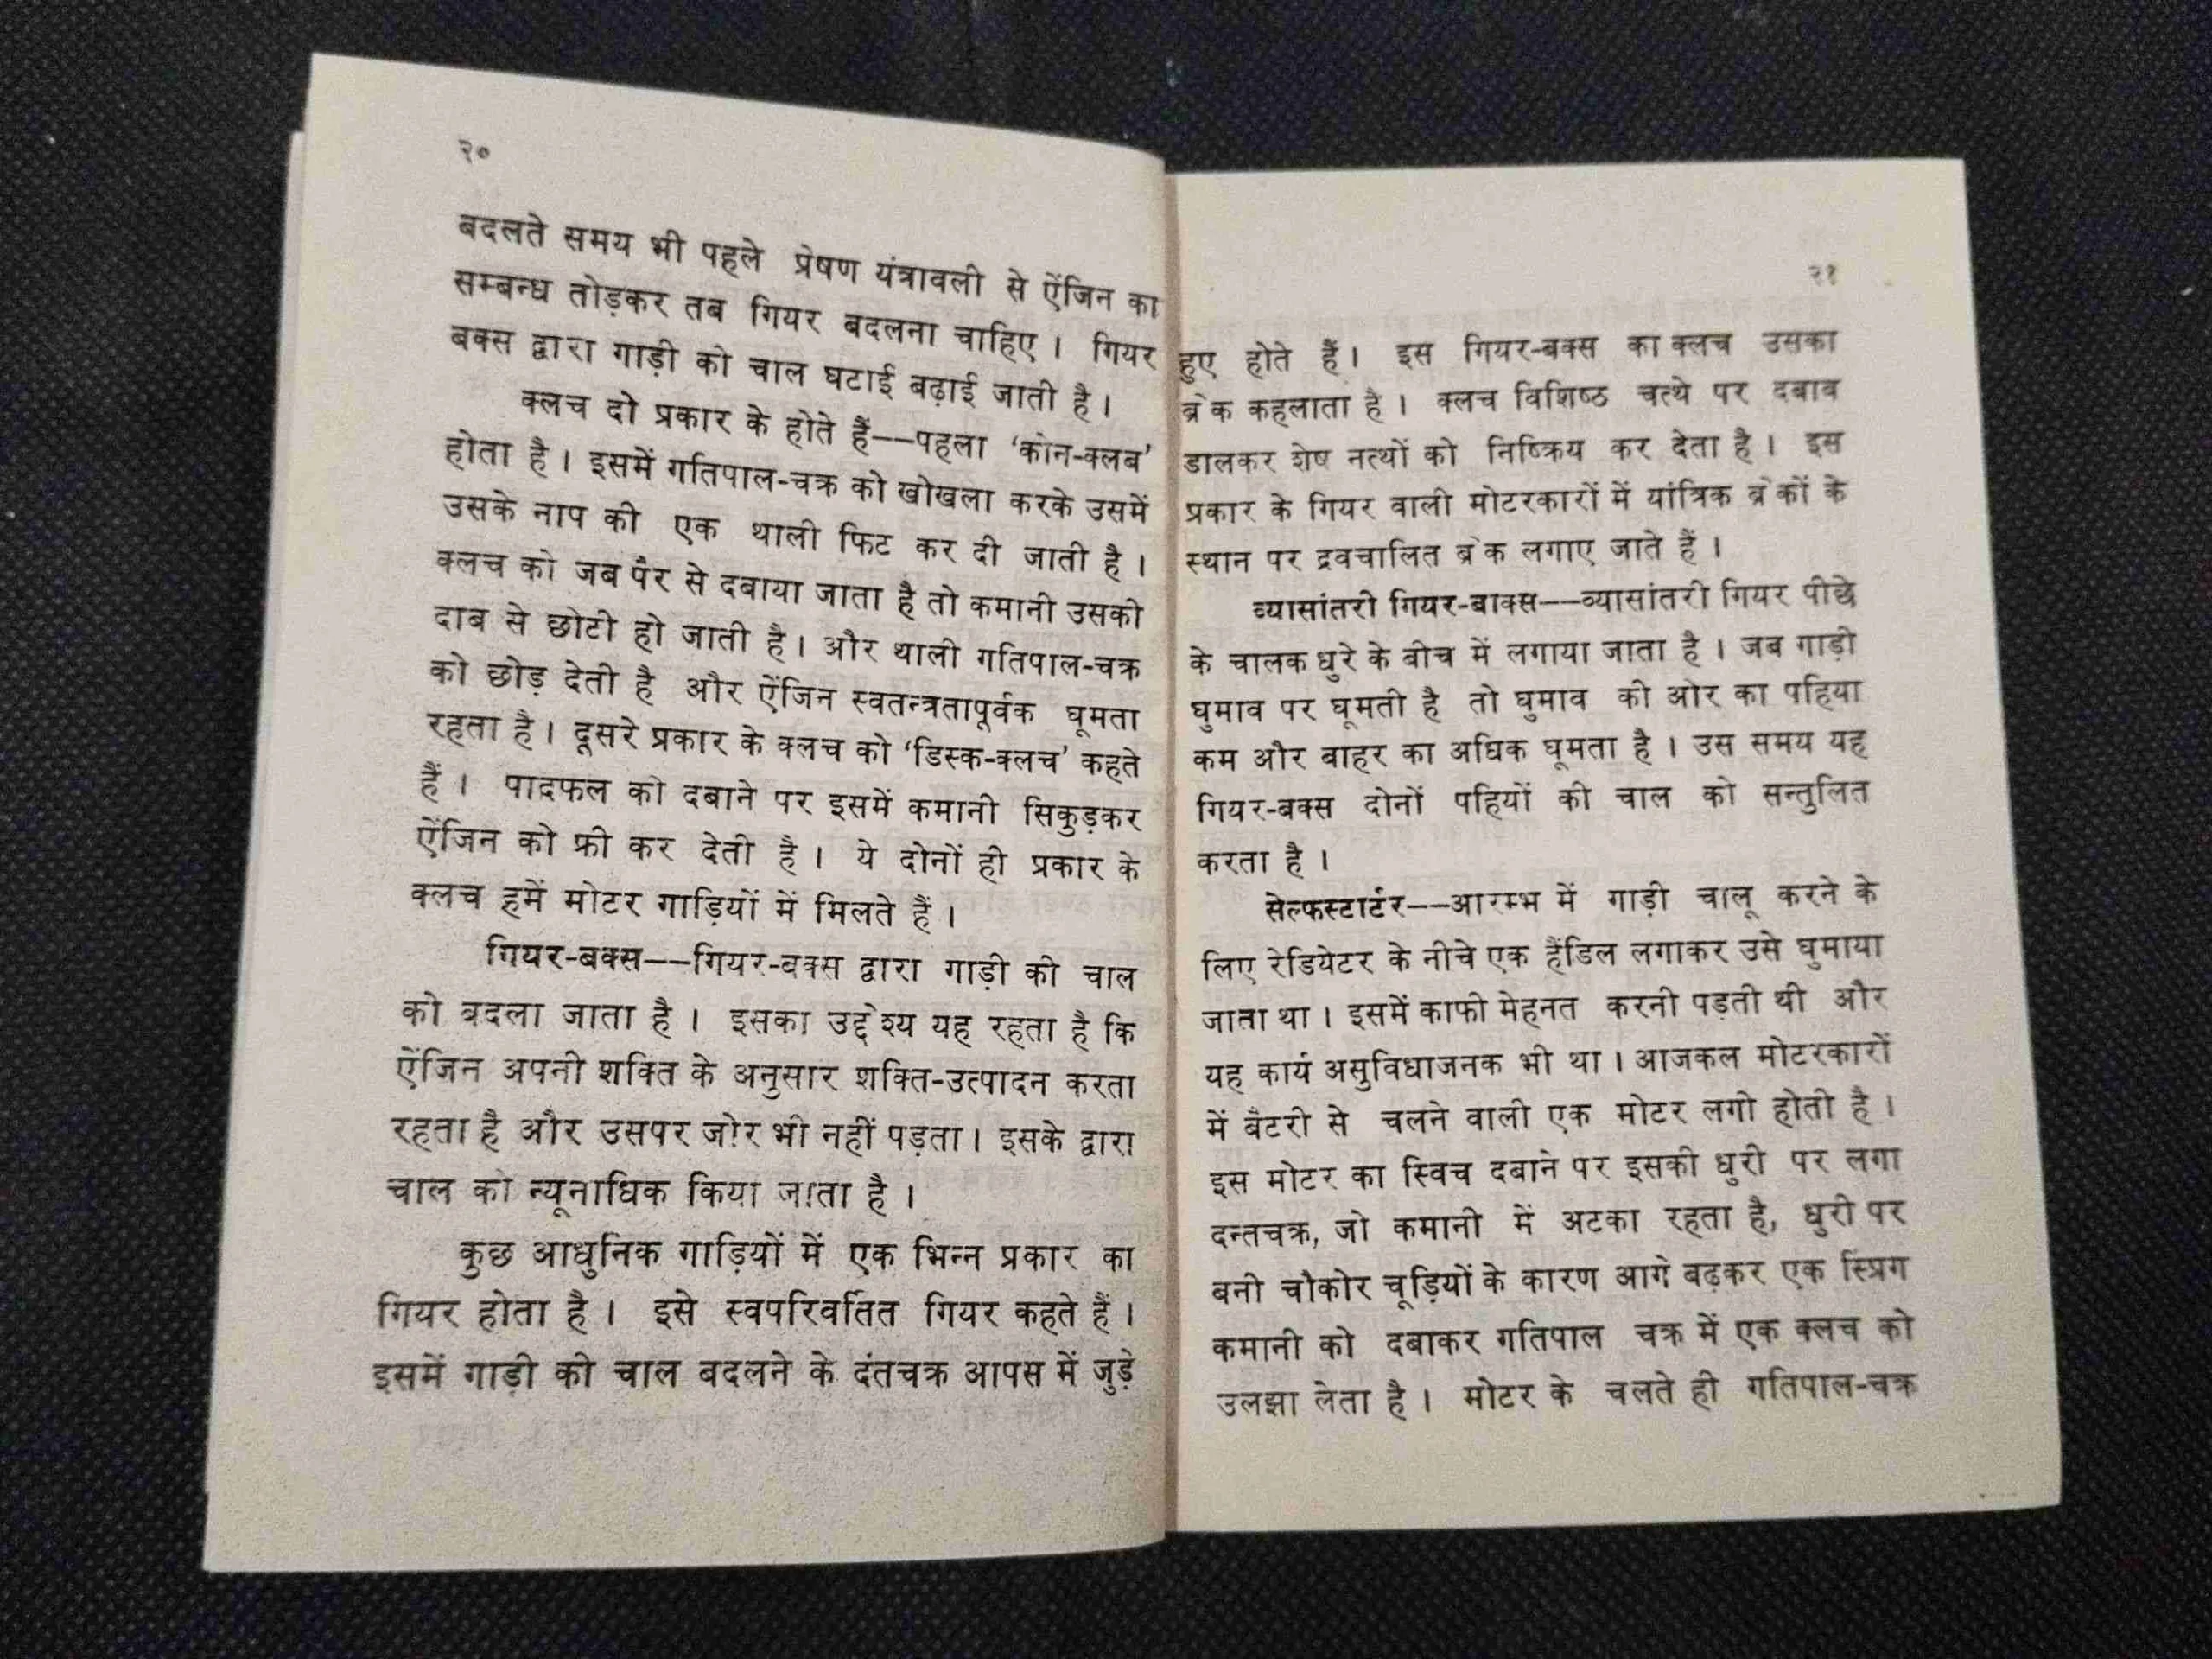 २०
बदलते समय भी पहले प्रेषण यंत्रावली से ऐंजिन का
सम्बन्ध तोड़कर तब गियर बदलना चाहिए । गियर
बक्स द्वारा गाड़ी को चाल घटाई बढ़ाई जाती है ।
क्लच दो प्रकार के होते हैं——पहला ‘कोन-क्लब’
होता है । इसमें गतिपाल-चक्र को खोखला करके उसमें
उसके नाप की एक थाली फिट कर दी जाती है ।
क्लच को जब पैर से दबाया जाता है तो कमानी उसकी
दाब से छोटी हो जाती है । और थाली गतिपाल-चक्र
को छोड़ देती है और ऐंजिन स्वतन्त्रतापूर्वक घूमता
रहता है । दूसरे प्रकार के क्लच को ‘डिस्क-क्लच’ कहते
हैं । पादफल को दबाने पर इसमें कमानी सिकुड़कर
ऐंजिन को फ्री कर देती है । ये दोनों ही प्रकार के
क्लच हमें मोटर गाड़ियों में मिलते हैं ।
गियर-बक्स——गियर-बक्स द्वारा गाड़ी की चाल
को बदला जाता है । इसका उद्देश्य यह रहता है कि
ऐंजिन अपनी शक्ति के अनुसार शक्ति-उत्पादन करता
रहता है और उसपर जोर भी नहीं पड़ता । इसके द्वारा
चाल को न्यूनाधिक किया जाता है ।
कुछ आधुनिक गाड़ियों में एक भिन्न प्रकार का
गियर होता है । इसे स्वपरिवर्तित गियर कहते हैं ।
इसमें गाड़ी की चाल बदलने के दंतचक्र आपस में जुड़े
२१
हुए होते हैं । इस गियर-बक्स का क्लच उसका
ब्रेक कहलाता है । क्लच विशिष्ठ चत्थे पर दबाव
डालकर शेष नत्थों को निष्क्रिय कर देता है । इस
प्रकार के गियर वाली मोटरकारों में यांत्रिक ब्रेकों के
स्थान पर द्रवचालित ब्रेक लगाए जाते हैं ।
व्यासांतरी गियर-बाक्स——व्यासांतरी गियर पीछे
के चालक धुरे के बीच में लगाया जाता है । जब गाड़ी
घुमाव पर घूमती है तो घुमाव की ओर का पहिया
कम और बाहर का अधिक घूमता है । उस समय यह
गियर-बक्स दोनों पहियों की चाल को सन्तुलित
करता है ।
सेल्फस्टार्टर——आरम्भ में गाड़ी चालू करने के
लिए रेडियेटर के नीचे एक हैंडिल लगाकर उसे घुमाया
जाता था । इसमें काफी मेहनत करनी पड़ती थी और
यह कार्य असुविधाजनक भी था । आजकल मोटरकारों
में बैटरी से चलने वाली एक मोटर लगी होती है ।
इस मोटर का स्विच दबाने पर इसकी धुरी पर लगा
दन्तचक्र, जो कमानी में अटका रहता है, धुरी पर
बनी चौकोर चूड़ियों के कारण आगे बढ़कर एक स्प्रिग
कमानी को दबाकर गतिपाल चक्र में एक क्लच को
उलझा लेता है । मोटर के चलते ही गतिपाल-चक्र